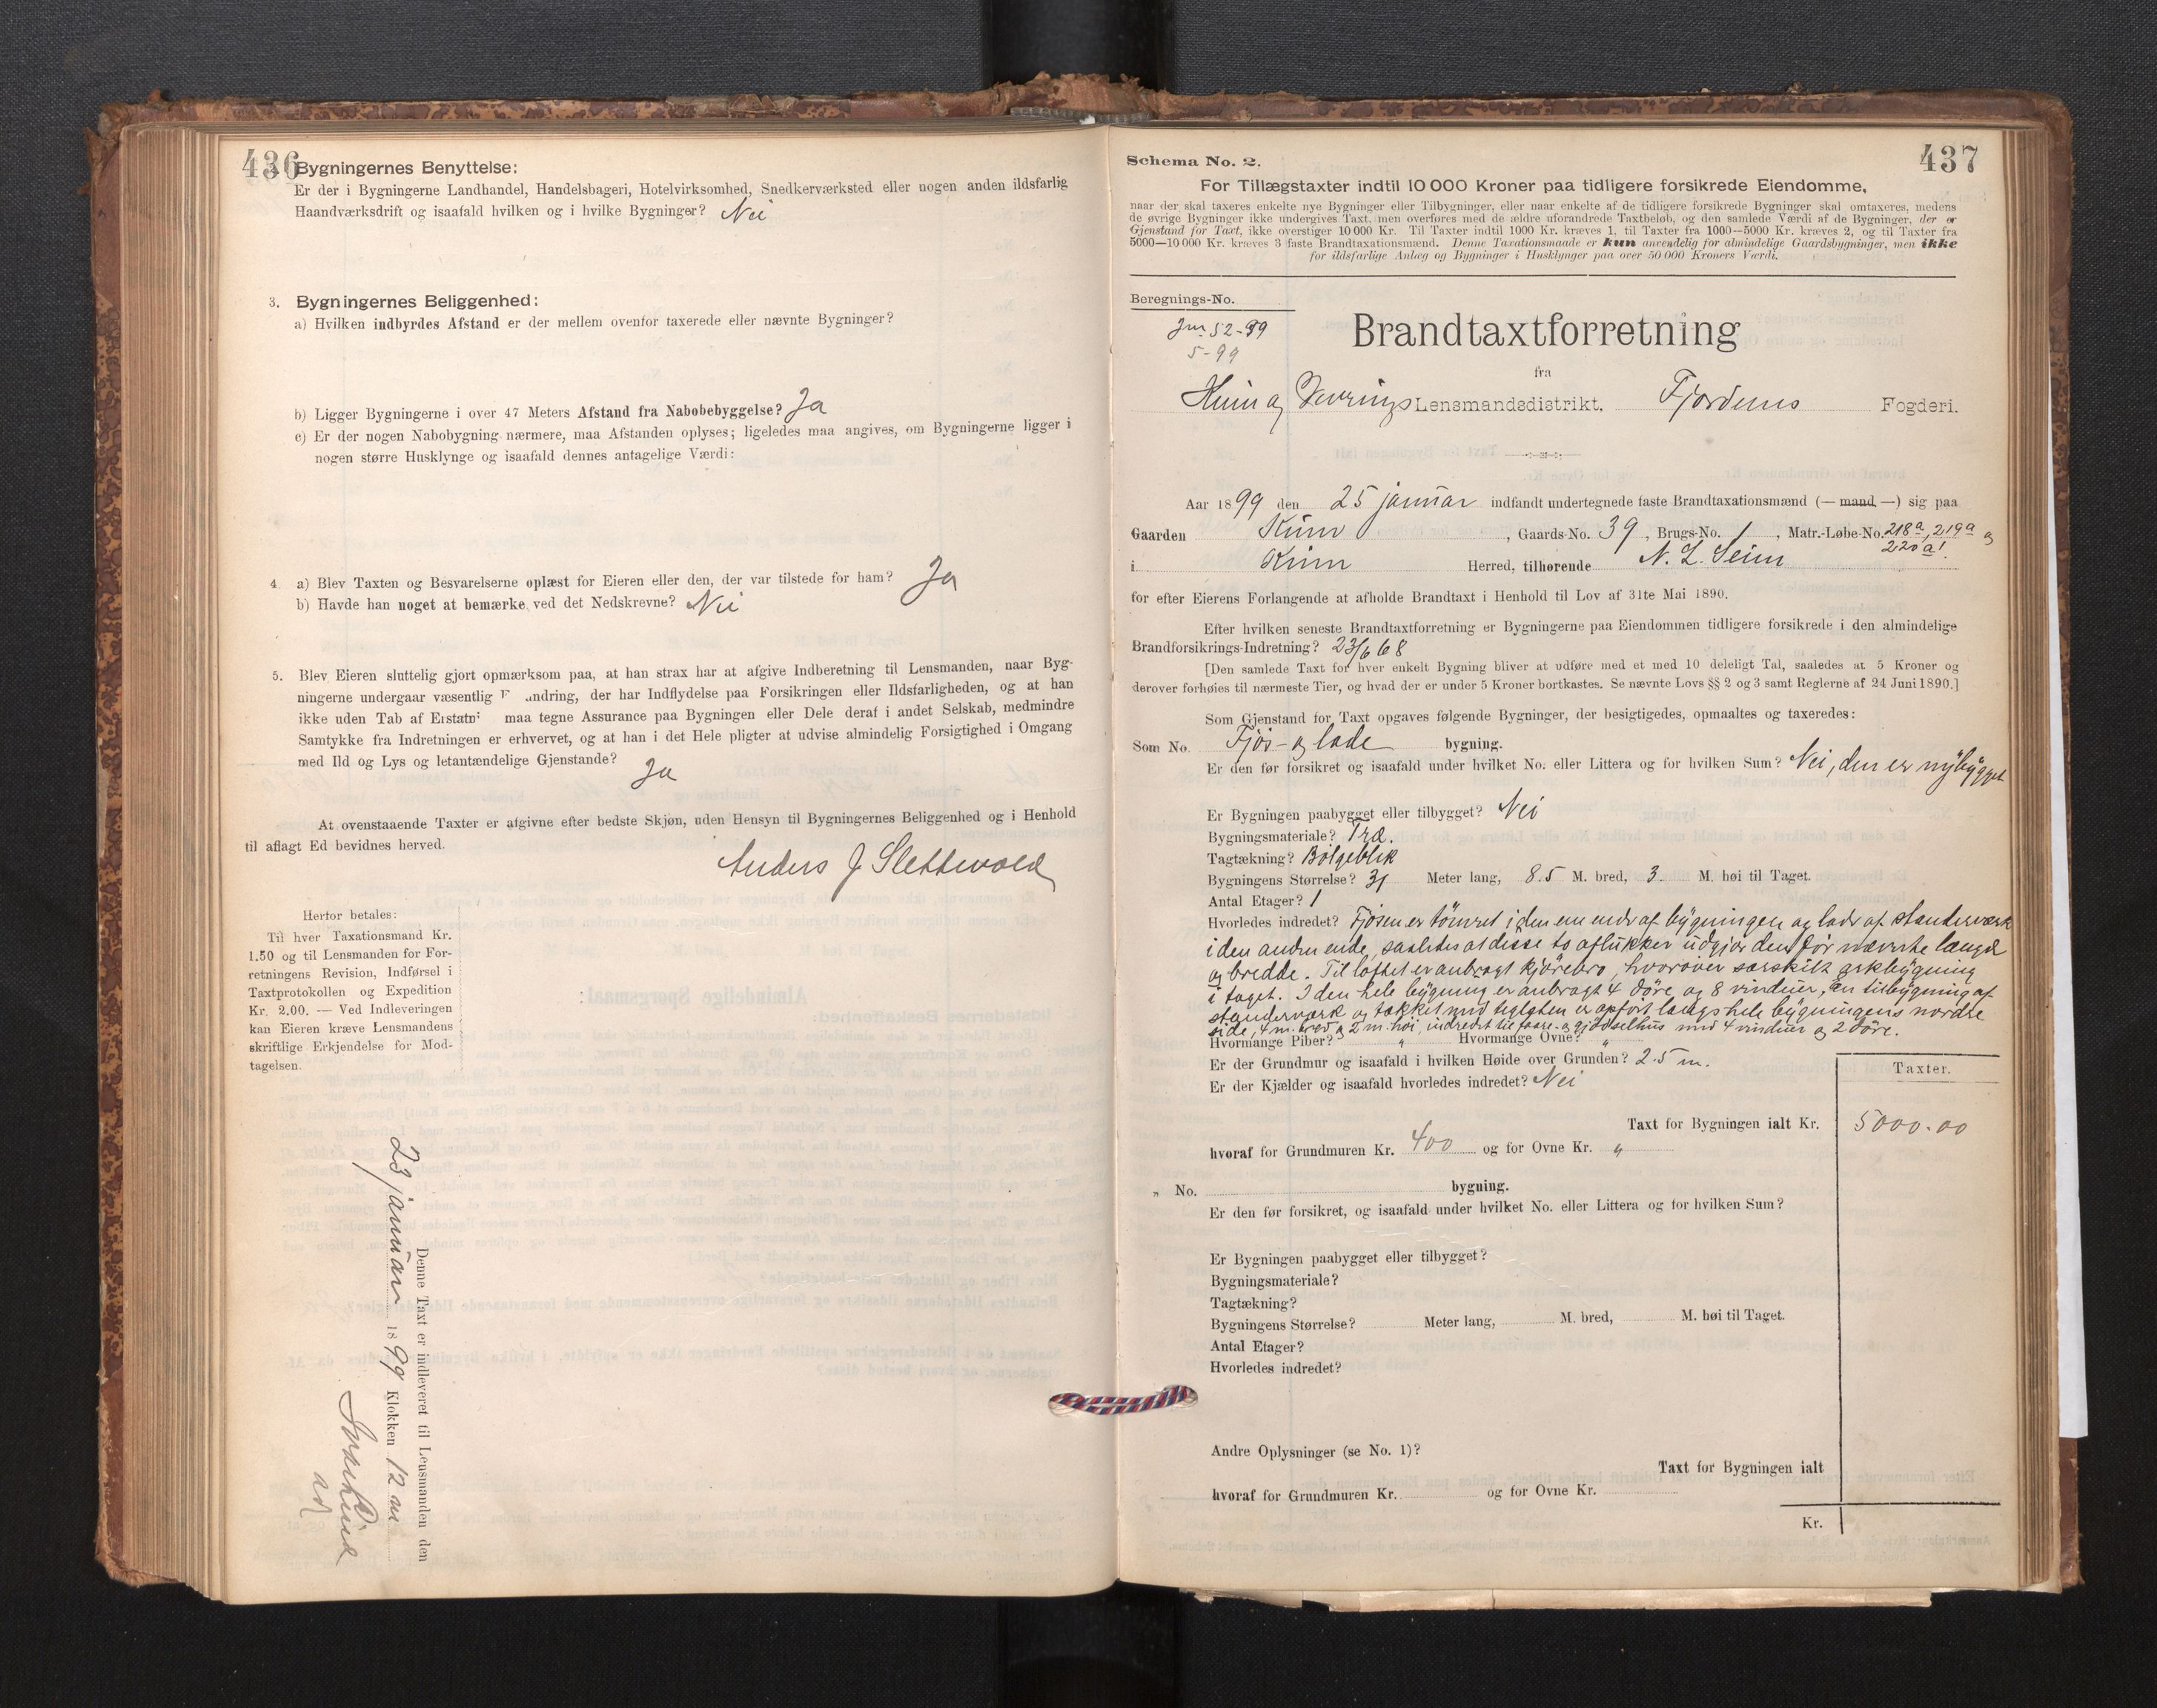 436
Bygningernes Benyttelse:
Er der i Bygningerne Landhandel, Handelsbageri, Hotelvirksomhed, Snedkerværksted eller nogen anden ildsfarlig
Haandværksdrift og isaafald hvilken og i hvilke Bygninger? Nei
3. Bygningernes Beliggenhed:
a) Hvilken indbyrdes Afstand er der mellem ovenfor taxerede eller nævnte Bygninger?
b) Ligger Bygningerne i over 47 Meters Afstand fra Nabobebyggelse? Ja
c) Er der nogen Nabobygning nærmere, maa Afstanden oplyses; ligeledes maa angives, om Bygningerne ligger i
nogen større Husklynge og isaafald dennes antagelige Værdi:
4. a) Blev Taxten og Besvarelserne oplæst for Eieren eller den, der var tilstede for ham? Ja
b) Havde han noget at bemærke ved det Nedskrevne? Nei
5. Blev Eieren sluttelig gjort opmærksom paa, at han strax har at afgive Indberetning til Lensmanden, naar Byg-
ningerne undergaar væsentlig F andring, der har Indflydelse paa Forsikringen eller Ildsfarligheden, og at han
ikke uden Tab af Erstatn maa tegne Assurance paa Bygningen eller Dele deraf i andet Selskab, medmindre
Samtykke fra Indretningen er erhvervet, og at han i det Hele pligter at udvise almindelig Forsigtighed i Omgang
med Ild og Lys og letantændelige Gjenstande? Ja
At ovenstaaende Taxter er afgivne efter bedste Skjøn, uden Hensyn til Bygningernes Beliggenhed og i Henhold
til aflagt Ed bevidnes herved.
Anders J Slettevold
Herfor betales:
Til hver Taxationsmand Kr.
1.50 og til Lensmanden for For-
retningens Revision, Indførsel i
Taxtprotokollen og Expedition
Kr. 2.00. — Ved Indleveringen
kan Eieren kræve Lensmandens
skriftlige Erkjendelse for Mod-
tagelsen.
Denne Taxt er indleveret til Lensmanden den
23 januar 1899 Klokken 12 m
437
Schema No. 2.
For Tillægstaxter indtil 10 000 Kroner paa tidligere forsikrede Eiendomme,
naar der skal taxeres enkelte nye Bygninger eller Tilbygninger, eller naar enkelte af de tidligere forsikrede Bygninger skal omtaxeres, medens
de øvrige Bygninger ikke undergives Taxt, men overføres med de ældre uforandrede Taxtbeløb, og den samlede Værdi af de Bygninger, der er
Gjenstand for Taxt, ikke overstiger 10 000 Kr. Til Taxter indtil 1000 Kr. kræves 1, til Taxter fra 1000—5000 Kr. kræves 2, og til Taxter fra
5000—10 000 Kr. kræves 3 faste Brandtaxationsmænd. Denne Taxationsmaade er kun anvendelig for almindelige Gaardsbygninger, men ikke
for ildsfarlige Anlæg og Bygninger i Husklynger paa over 50 000 Kroners Værdi.
Beregnings-No.
Jnr 52-99
5-99
Brandtaxtforretning
fra
Kinn og Vevrings Lensmandsdistrikt, Fjordenes Fogderi.
Aar 1899 den 25 januar indfandt undertegnede faste Brandtaxationsmænd (— mand —) sig paa
Gaarden Kinn, Gaards-No. 39, Brugs-No. 1, Matr.-Løbe-No. 218a, 219a og
220a1
i Kinn Herred, tilhørende N. L. Seim
for efter Eierens Forlangende at afholde Brandtaxt i Henhold til Lov af 31te Mai 1890.
Efter hvilken seneste Brandtaxtforretning er Bygningerne paa Eiendommen tidligere forsikrede i den almindelige
Brandforsikrings-Indretning? 23/6 68
[Den samlede Taxt for hver enkelt Bygning bliver at udføre med et med 10 deleligt Tal, saaledes at 5 Kroner og
derover forhøies til nærmeste Tier, og hvad der er under 5 Kroner bortkastes. Se nævnte Lovs §§ 2 og 3 samt Reglerne af 24 Juni 1890.]
Som Gjenstand for Taxt opgaves følgende Bygninger, der besigtigedes, opmaaltes og taxeredes:
Som No. Fjøs- og lade bygning.
Er den før forsikret og isaafald under hvilket No. eller Littera og for hvilken Sum? Nei, den er nybygget
Er Bygningen paabygget eller tilbygget? Nei
Bygningsmateriale? Træ.
Tagtækning? Bølgeblik
Bygningens Størrelse? 31 Meter lang, 8.5 M. bred, 3. M. høi til Taget.
Antal Etager? 1
Hvorledes indredet? Fjøsen er tømret i den ene ende af bygningen og lade af standerværk
i den anden ende, saaledes at disse to aflukker udgjør den før nævnte længde
og bredde. Til loftet er anbragt kjørebro, hvorover særskilt arkbygning
i taget. I den hele bygning er anbragt 4 døre og 8 vinduer, En tilbygning af
standerværk og tækket med teglsten er opført langs hele bygningens nordre
side, 4 m. bred og 2 m. høi, indredet til faare- og gjødselhus med 4 vinduer og 2 døre.
Hvormange Piber? " Hvormange Ovne? "
Er der Grundmur og isaafald i hvilken Høide over Grunden? 2.5 m.
Er der Kjælder og isaafald hvorledes indredet? Nei
Taxter.
Taxt for Bygningen ialt Kr. 5000.00
hvoraf for Grundmuren Kr. 400 og for Ovne Kr. "
" No. bygning.
Er den før forsikret, og isaafald under hvilket No. eller Littera og for hvilken Sum?
Er Bygningen paabygget eller tilbygget?
Bygningsmateriale?
Tagtækning?
Bygningens Størrelse? Meter lang, M. bred, M. høi til Taget.
Antal Etager?
Hvorledes indredet?
Andre Oplysninger (se No. 1)?
Taxt for Bygningen ialt
hvoraf for Grundmuren Kr. og for Ovne Kr.
Kr.